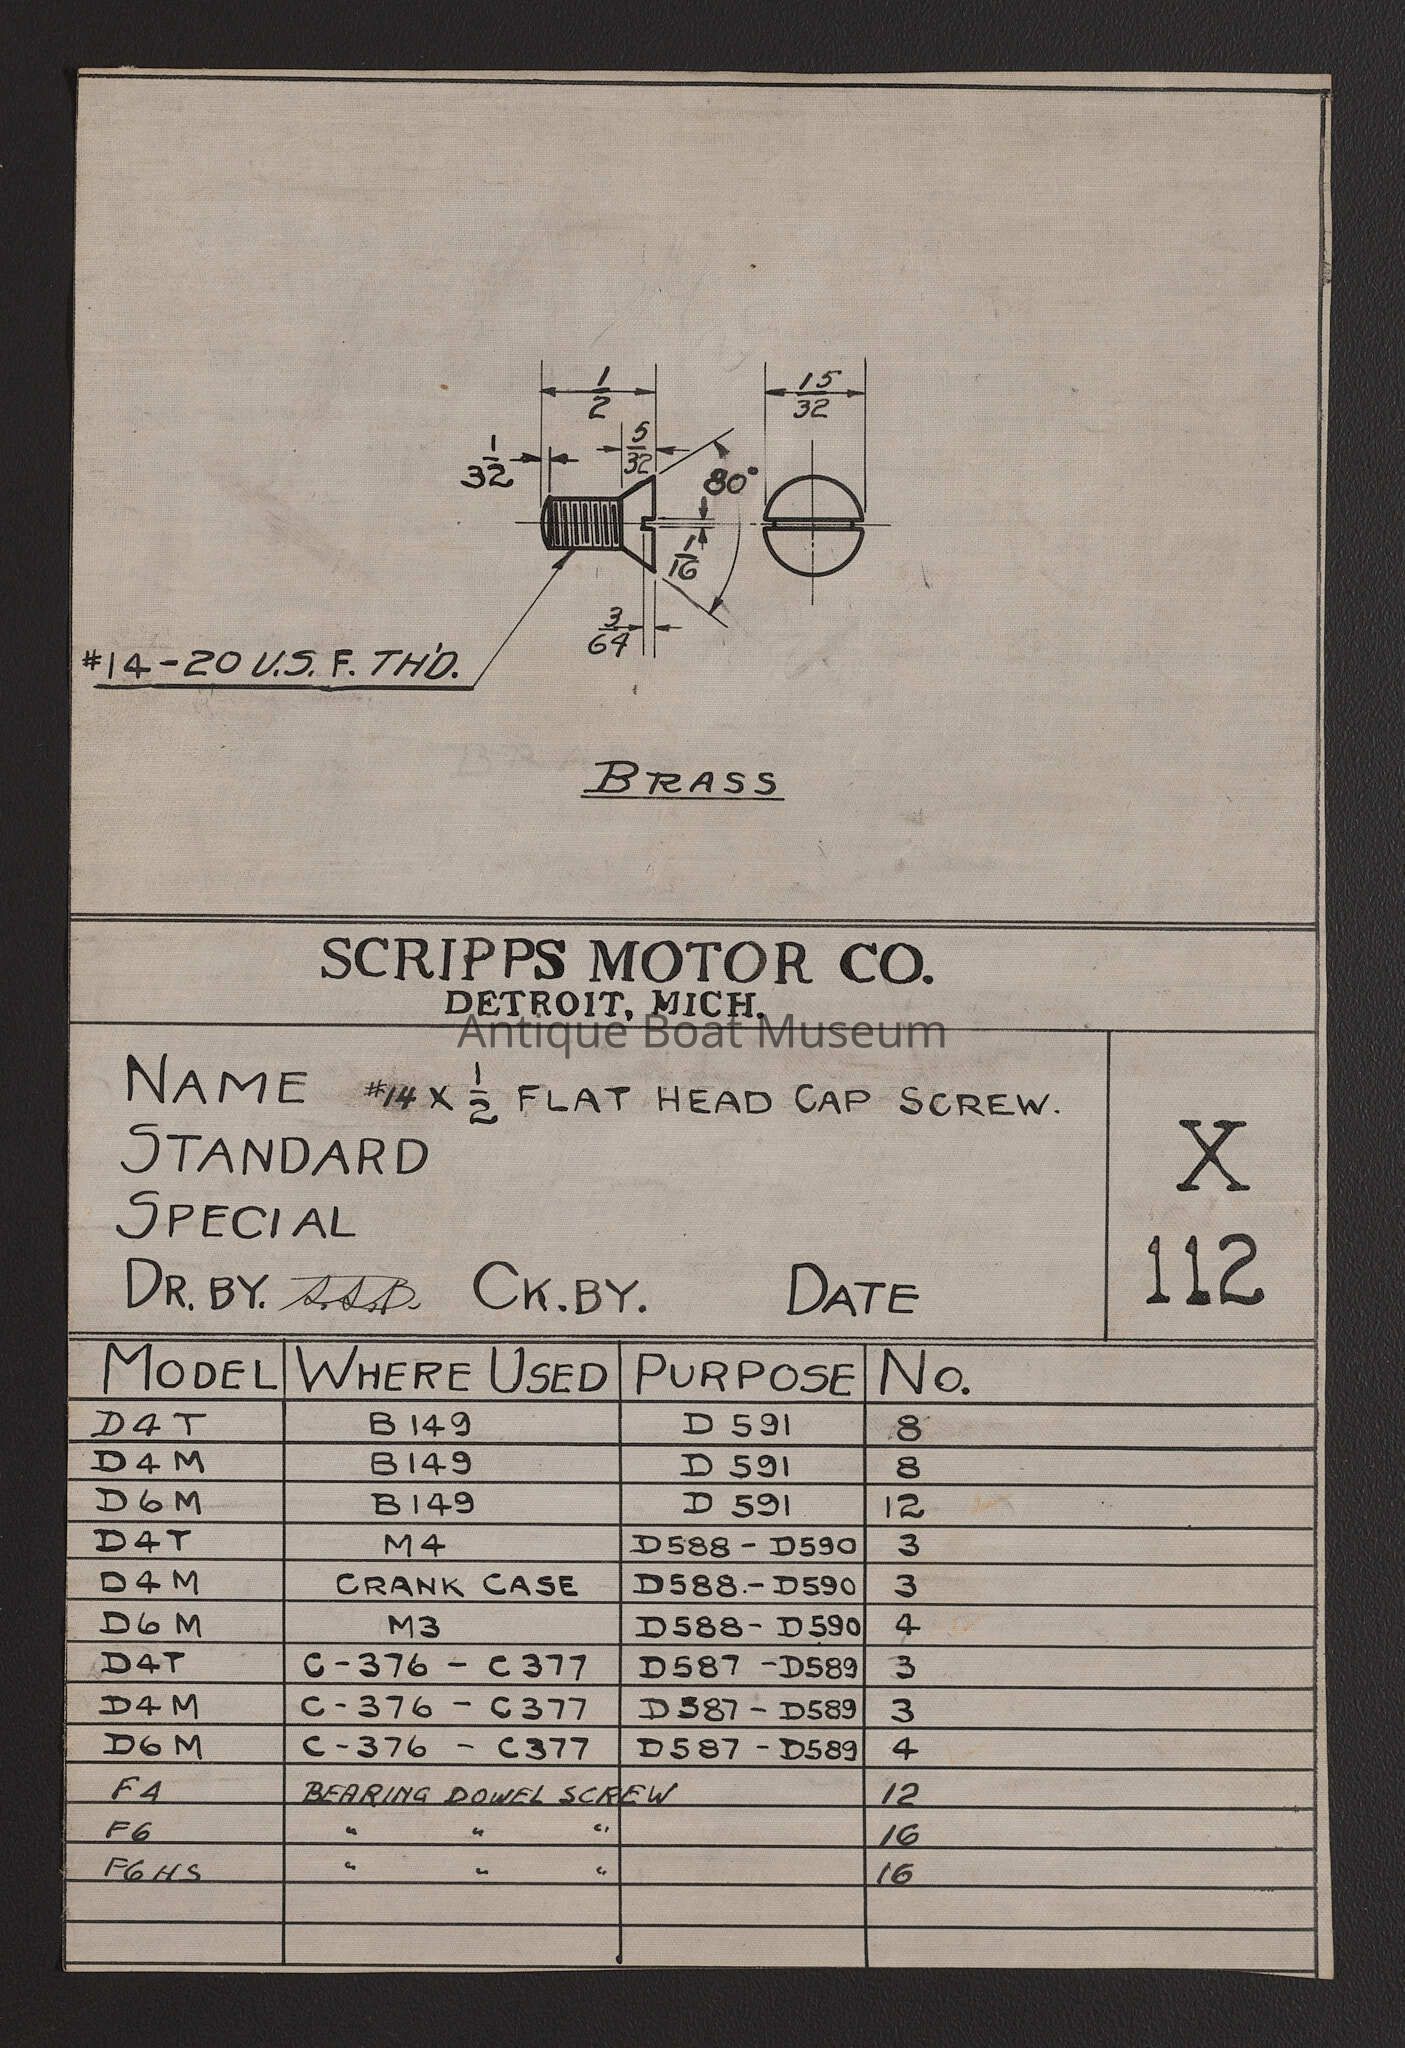 1/2
15/32
5/32
1/32
80°
1/16
3/64
#14-20 U.S.F. TH'D.
BRASS
SCRIPPS MOTOR CO.
DETROIT, MICH.
Antique Boat Museum
NAME #14 X 1/2 FLAT HEAD CAP SCREW.
STANDARD
SPECIAL
X
112
DR. BY. CK. BY. DATE
MODEL WHERE USED PURPOSE NO.
D4T B149 D591 8
D4M B149 D591 8
D6M B149 D591 12
D4T M4 D588 - D590 3
D4M CRANK CASE D588.- D590 3
D6M M3 D588 - D590 4
D4T C-376 - C377 D587 - D589 3
D4M C-376 - C377 D587 - D589 3
D6M C-376 - C377 D587 - D589 4
F4 BEARING DOWEL SCREW 12
F6 " " " 16
F6HS " " " 16